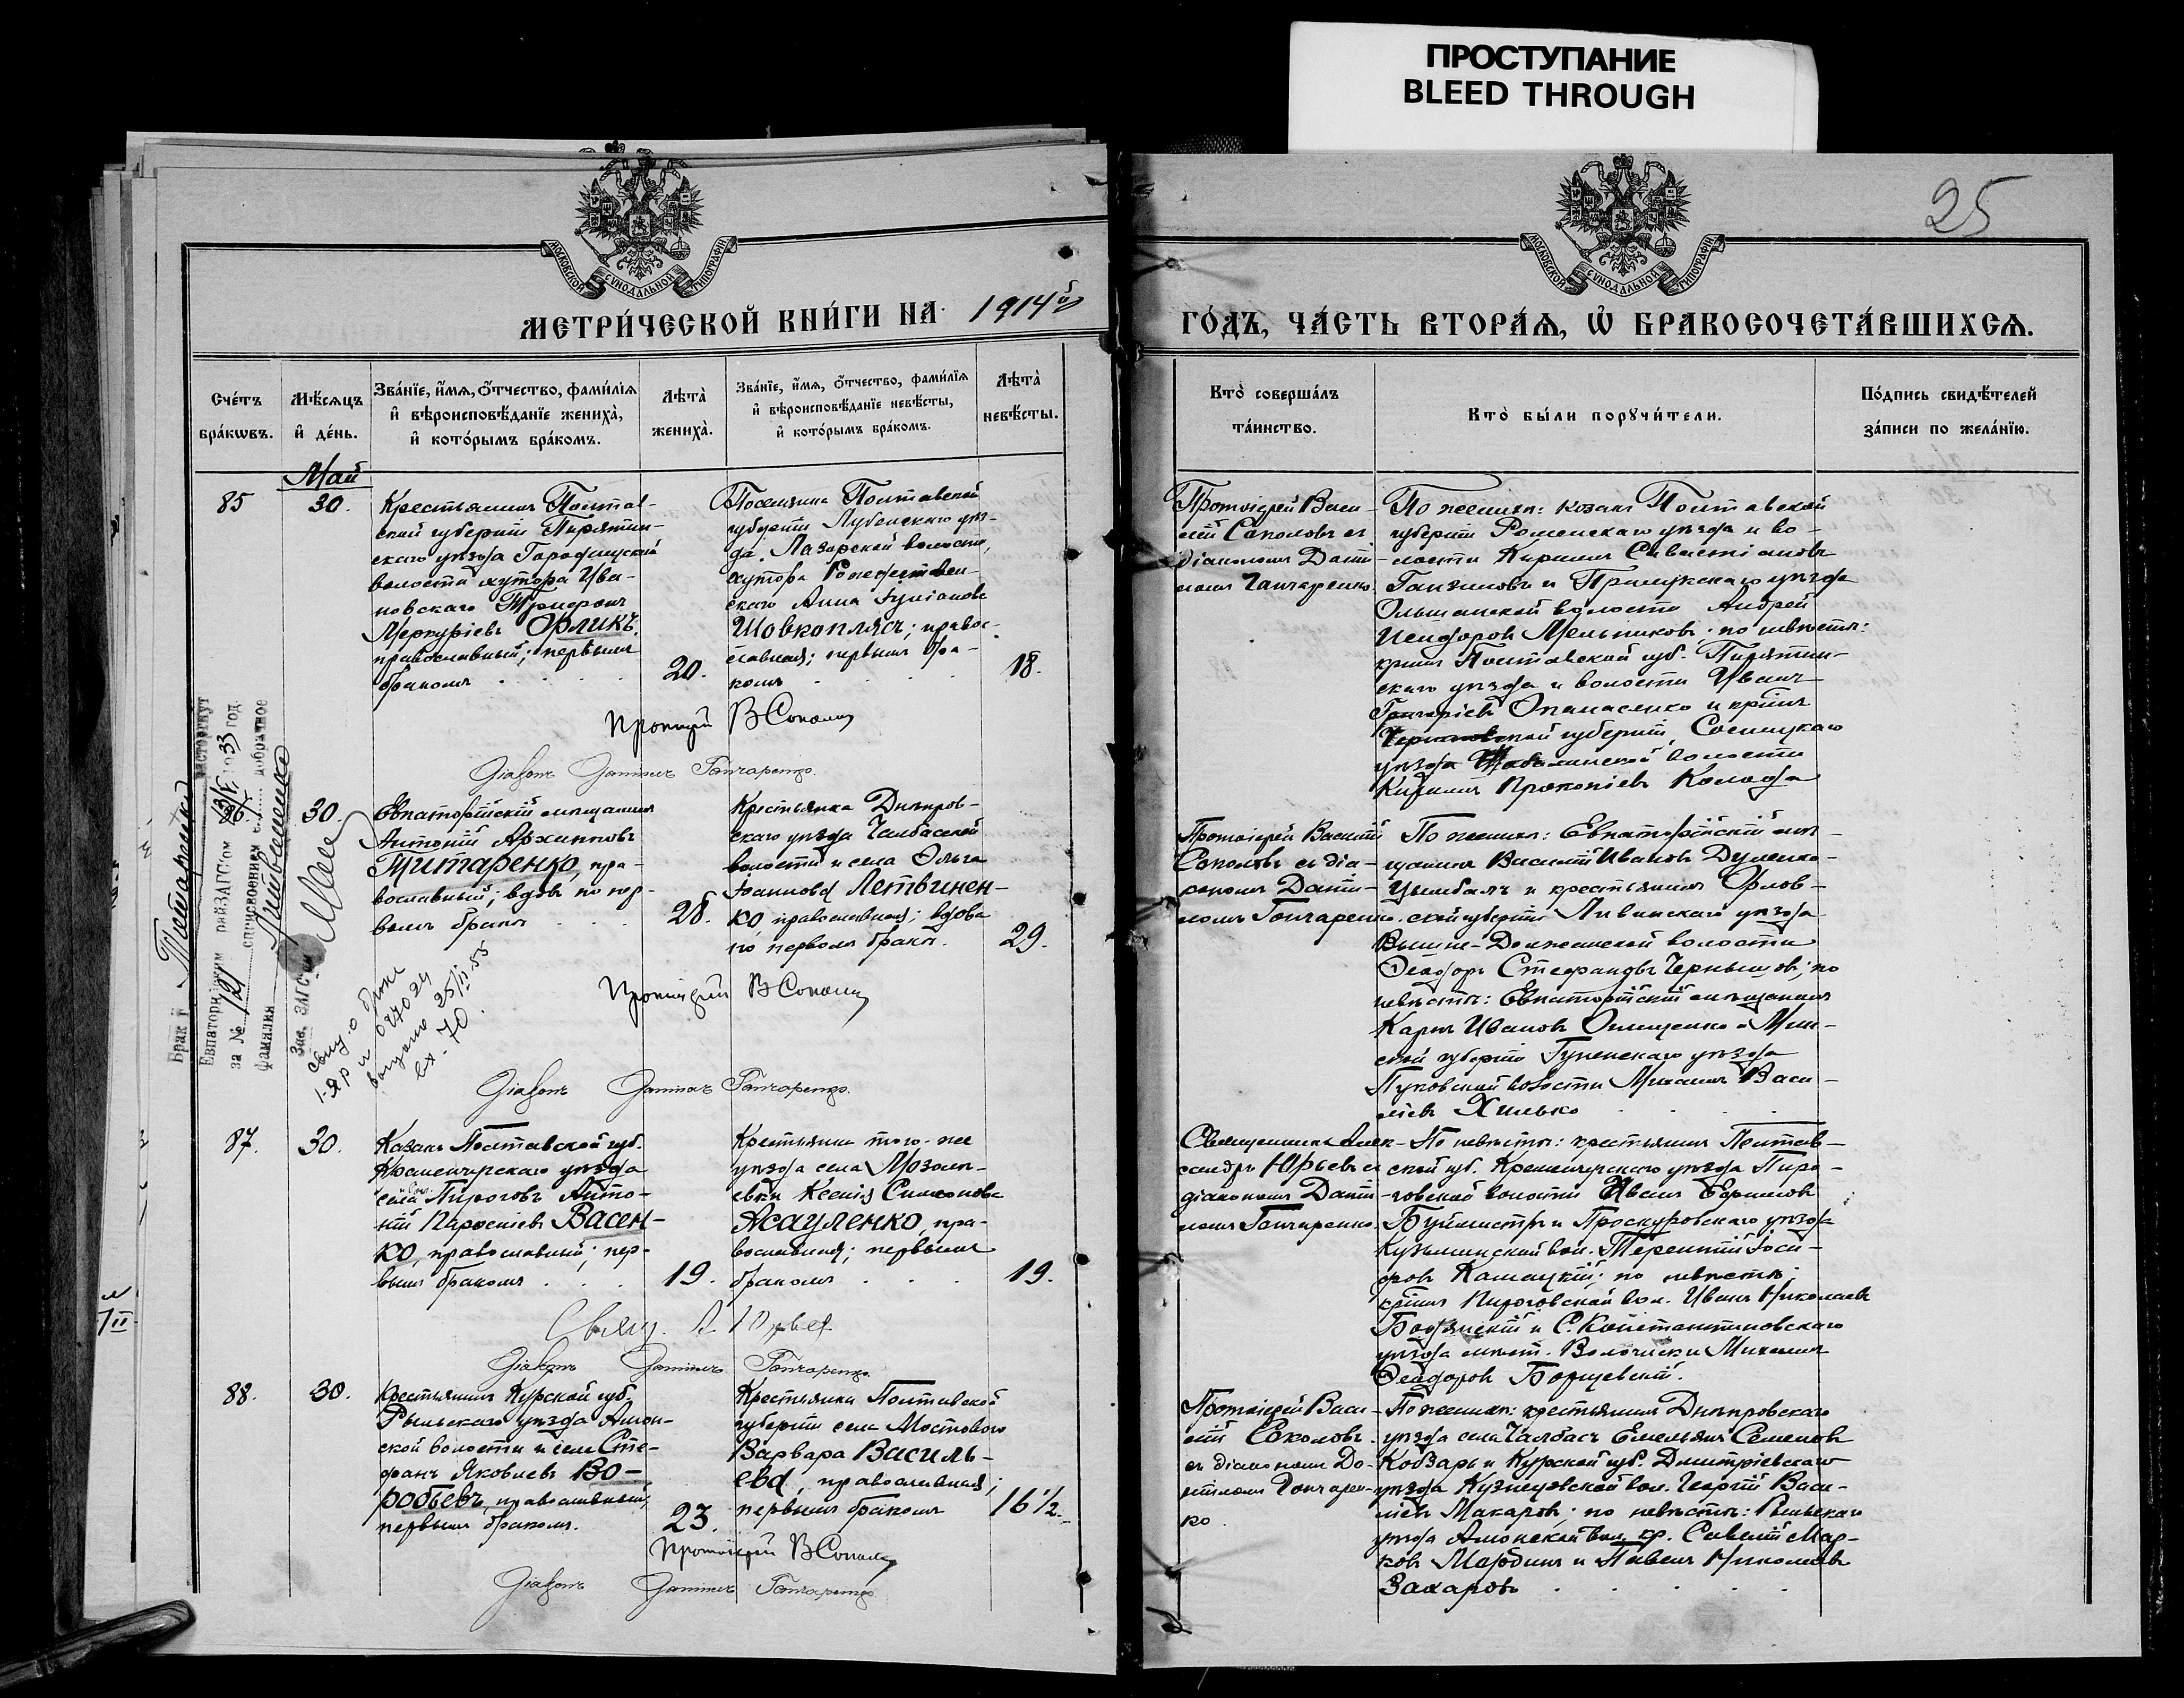 ПРОСТУПАНИЕ
BLEED THROUGH
25
МОСКОВСКОЙ СУНОДАЛЬНОЙ ТИПОГРАФІИ
МОСКОВСКОЙ СУНОДАЛЬНОЙ ТИПОГРАФІИ
МЕТРИ́ЧЕСКОЙ КНИ́ГИ НА 1914й
ГО́ДЪ, ЧА́СТЬ ВТОРА́Ѧ, Ѡ҆ БРАКОСОЧЕТА́ВШИХСѦ.
Сче́тъ
бра́кѡвъ.
Мѣ́сѧцъ
и҆ де́нь.
Зва́нїе, и҆́мѧ, ѻ҆́тчество, фами́лїѧ
и҆ вѣроисповѣ́данїе жениха̀,
и҆ кото́рымъ бра́комъ.
Лѣта̀
жениха̀.
Зва́нїе, и҆́мѧ, ѻ҆́тчество, фами́лїѧ
и҆ вѣроисповѣ́данїе невѣ́сты,
и҆ кото́рымъ бра́комъ.
Лѣта̀
невѣ́сты.
Кто̀ соверша́лъ
та́инство.
Кто̀ бы́ли порꙋчи́тели.
По́дпись свидѣ́телей
за́писи по жела́нїю.
Май
85
30.
Крестьянинъ Полтав-
ской губерніи Пирятин-
скаго уѣзда Городищской
волости хутора Ива-
новскаго Трифонъ
Меркуріевъ Орликъ,
православный; первымъ
бракомъ
20.
Поселянка Полтавской
губерніи Лубенскаго уѣз-
да, Лазорской волости,
хутора Рождествен-
скаго Анна Іуліанова
Шовкоплясъ; право-
славная; первымъ бра-
комъ
18.
Протоіерей Васи-
лій Соколовъ съ
діакономъ Дани-
ломъ Гончаренко.
По женихѣ: козакъ Полтавской
губерніи Роменскаго уѣзда и во-
лости Кириллъ Севастіановъ
и Прилукскаго уѣзда
Ольшанской волости Андрей
Исидоровъ Мельниковъ; по невѣстѣ:
крнинъ Полтавской губ. Пирятин-
скаго уѣзда и волости Иванъ
Григоріевъ Опанасенко и крнинъ
Черниговской губерніи, Сосницкаго
уѣзда волости
Кириллъ Прокопіевъ Колода
Протоіерей В Соколовъ
Діаконъ Даніилъ Гончаренко.
86.
30.
Евпаторійскій мѣщанинъ
Антоній Архиповъ
Титаренко, пра-
вославный; вдовъ по пер-
вомъ бракѣ
28.
Крестьянка Днѣпров-
скаго уѣзда Чалбасской
волости и села Ольга
Іоаннова Летвинен-
ко, православная; вдова
по первомъ бракѣ.
29.
Протоіерей Василій
Соколовъ съ діа-
кономъ Дани-
ломъ Гончаренко.
По женихѣ: Евпаторійскій мѣ-
щанинъ Василій Ивановъ Дуленко-
Цымбалъ и крестьянинъ Орлов-
ской губерніи Ливенскаго уѣзда
Вышне-Долженской волости
Ѳеодоръ Стефановъ Чернышовъ; по
невѣстѣ: Евпаторійскій мѣщанинъ
Карпъ Ивановъ Онищенко и Мин-
ской губерніи Игуменскаго уѣзда
Пуковской волости Михаилъ Васи-
ліевъ Хилько
Брак Титаренко расторгнут
Евпаторийским райЗАГСом 1933 год
за № 121 с присвоением ей добрачное
фамилия Литвиненко
Зав. ЗАГСом
Свид. о браке
I-ЯР № 027024
выдано 25/II-55
вх-70.
Протоіерей В Соколовъ
Діаконъ Даніилъ Гончаренко.
87.
30.
Казакъ Полтавской губ.
Кременчугскаго уѣзда
села Пироговъ Анто-
ній Парѳеніевъ Васен-
ко, православный; пер-
вымъ бракомъ
19.
Крестьянка того-же
уѣзда села Мозолѣ-
евки Ксенія Симеонова
Асауленко, пра-
вославная; первымъ
бракомъ
19.
Священникъ Алек-
сандръ Юрьевъ съ
діакономъ Дани-
ломъ Гончаренко.
По невѣстѣ: крестьянинъ Полтав-
ской губ. Кременчугскаго уѣзда Пиро-
говской волости Иванъ Ефимовъ
Буймистръ и Проскуровскаго уѣзда
Кузьминской вол. Терентій Іоси-
фовъ Камацкій; по невѣстѣ:
крнинъ Пироговской вол. Иванъ Николаевъ
Бодянскій и С. Константиновскаго
уѣзда мѣст. Волочиски Михаилъ
Ѳеодоровъ Борщевскій.
Свящ. А Юрьевъ
Діаконъ Даніилъ Гончаренко.
88.
30.
Крестьянинъ Курской губ.
Рыльскаго уѣзда Амон-
ской волости и села Сте-
фанъ Яковлевъ Во-
робьевъ, православный,
первымъ бракомъ.
23.
Крестьянка Полтавской
губерніи села Мостового
Варвара Василь-
ева, православная;
первымъ бракомъ
16½.
Протоіерей Васи-
лій Соколовъ
съ діакономъ Да-
ніиломъ Гончарен-
ко.
По женихѣ: крестьянинъ Днѣпровскаго
уѣзда села Чалбасъ Емельянъ Семеновъ
Кобзарь и Курской губ. Дмитріевскаго
уѣзда Кузнецовской вол. Георгій Васи-
ліевъ Макаровъ; по невѣстѣ: Рыльскаго
уѣзда Амонской вол. кр. Савелій Мар-
ковъ и Павелъ Николаевъ
Захаровъ
Протоіерей В Соколовъ
Діаконъ Даніилъ Гончаренко.